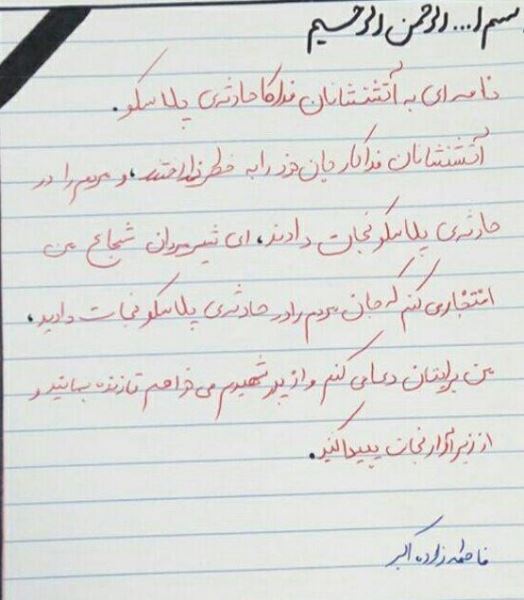 بسم ا... الرحمن الرحیم
نامه ای به آتشنشانان فداکار حادثه‌ی پلاسکو.
آتشنشانان فداکار جان خود را به خطر انداختند، و مردم را در
حادثه‌ی پلاسکو نجات دادند، ای شیرمردان شجاع من
افتخار می کنم که جان مردم را در حادثه‌ی پلاسکو نجات دادید.
من برایتان دعا می کنم و از پدر شهیدم می خواهم تا زنده بمانید و
از زیر آوار نجات پیدا کنید.
فاطمه زاده اکبر